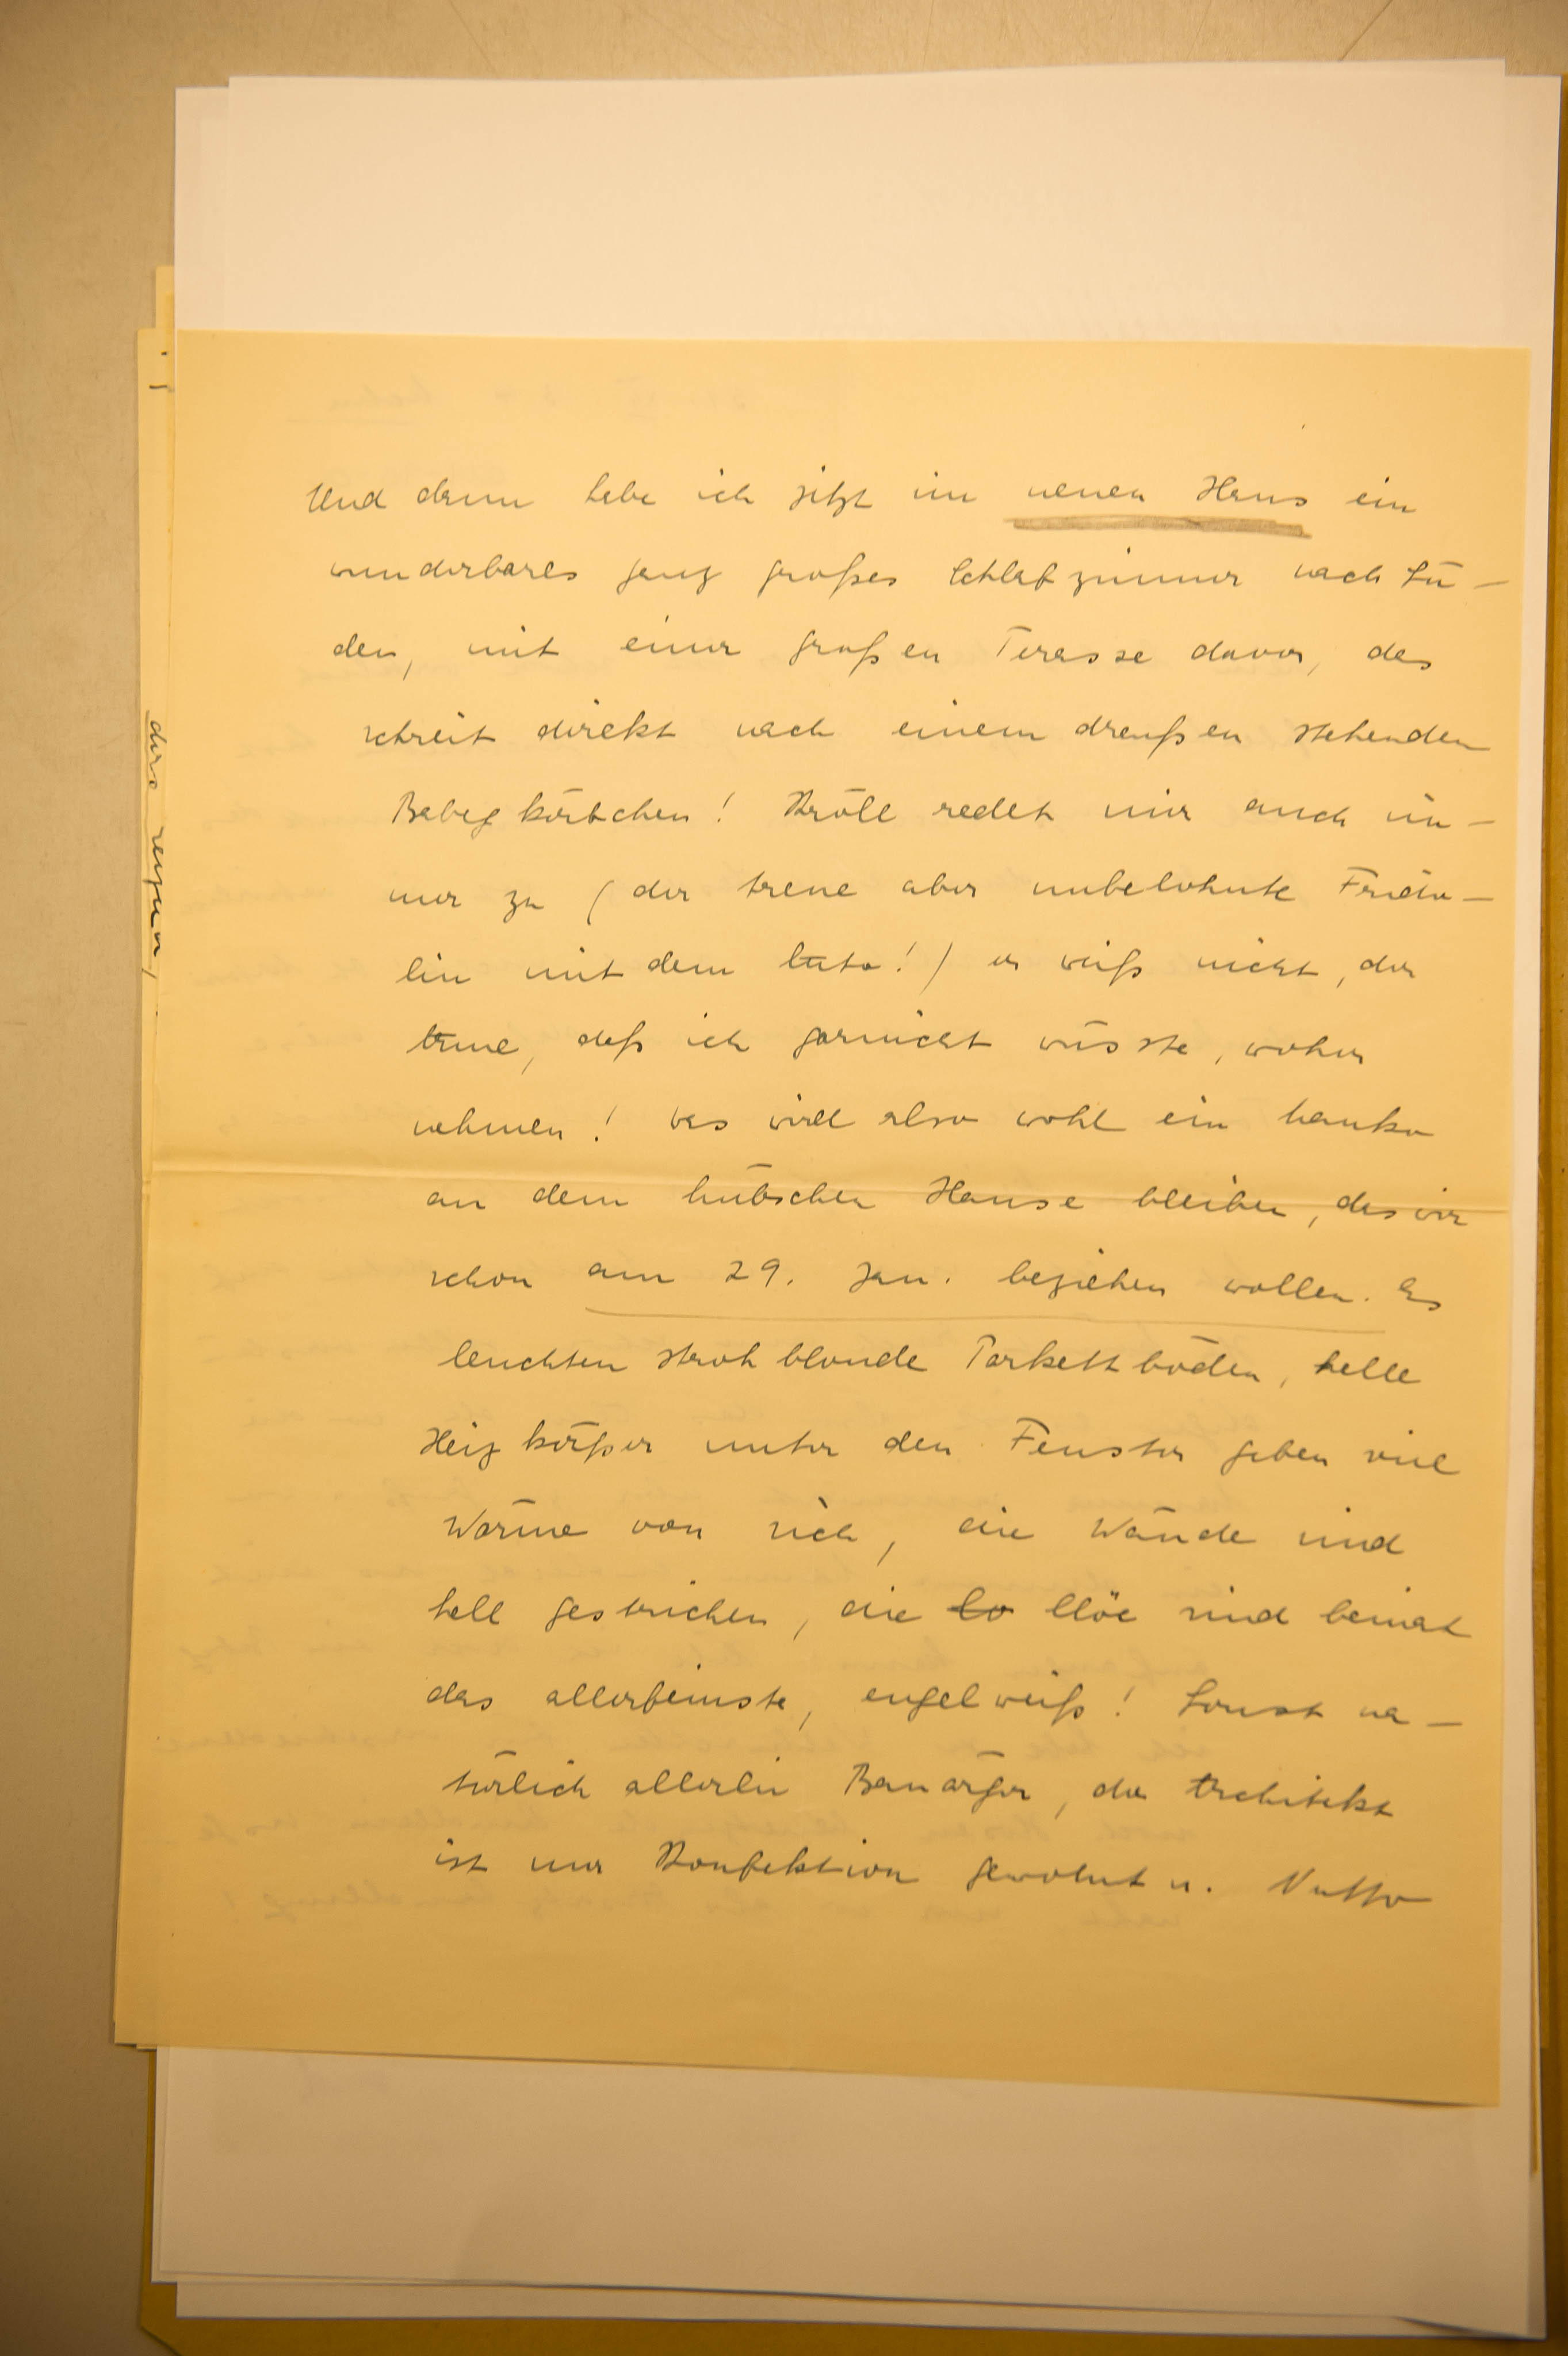 Und dann habe ich jetzt im neuen Haus ein
wunderbares ganz großes Schlafzimmer nach Sü-
den, mit einer großen Terasse davor, das
schreit direkt nach einem draußen stehenden
Babykörbchen! Kröll redet mir auch im-
mer zu (der treue aber unbelohnte Frido-
lin mit dem Auto!) er weiß nicht, der
treue, daß ich garnicht wüsste, woher
nehmen! Das wird also wohl ein Manko
an dem hübschen Hause bleiben, das wir
schon am 29. Jan. beziehen wollen. Es
leuchten strohblonde Parkettböden, helle
Heizkörper unter den Fenstern geben viel
Wärme von sich, die Wände sind
hell gestrichen, die Clöe sind beinah
das allerfeinste, engelweiß! Sonst na-
türlich allerlei Bauärger, der Architekt
ist nur Konfektion gewohnt u.